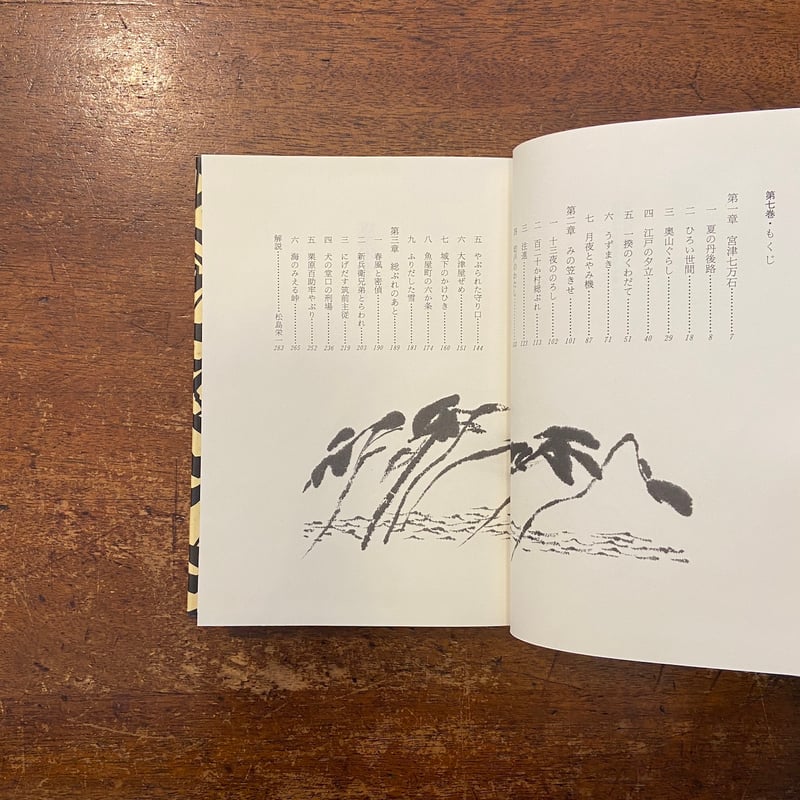 第七巻・もくじ
第一章 宮津七万石………7
一 夏の丹後路………8
二 ひろい世間………18
三 奥山ぐらし………29
四 江戸の夕立………40
五 一揆のくわだて………51
六 うずまき………71
七 月夜とやみ機………87
第二章 みの笠きせ………101
一 十三夜ののろし………102
二 百二十か村総ぶれ………113
三 注進………123
五 やぶられた守り口………144
六 大津屋ぜめ………151
七 城下のかけひき………160
八 魚屋町の六か条………174
九 ふりだした雪………181
第三章 総ぶれのあと………189
一 春風と密偵………190
二 新兵衛兄弟とらわれ………203
三 にげだす筑前主従………219
四 犬の堂口の刑場………236
五 栗原百助牢やぶり………252
六 海のみえる峠………265
解説………松島栄一 283